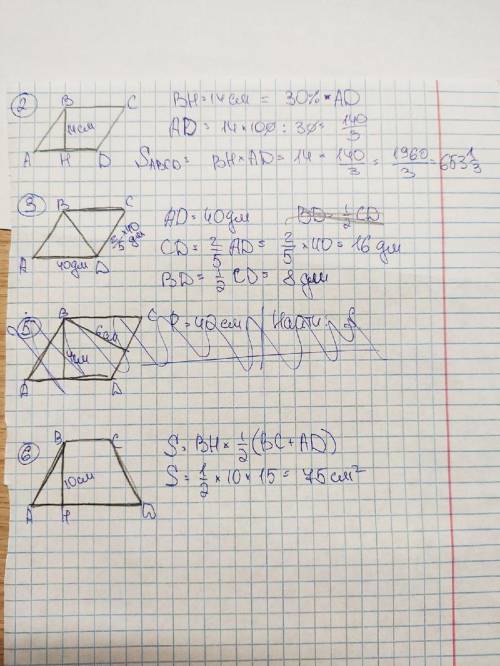 2
B C
14см
A H D
BH = 14 см = 30% * AD
AD = 14 * 100 : 30 = 140/3
S ABCD = BH * AD = 14 * 140/3 = 1960/3 = 653 1/3
3
B C
2/5 * 40 дм
A 40дм D
AD = 40дм BD = 1/2 CD
CD = 2/5 AD = 2/5 * 40 = 16 дм
BD = 1/2 CD = 8 дм
5
B C
6см
4см
A D
P = 40 см Найти: S
6
B C
10см
A H D
S = BH * 1/2 (BC + AD)
S = 1/2 * 10 * 15 = 75 см²